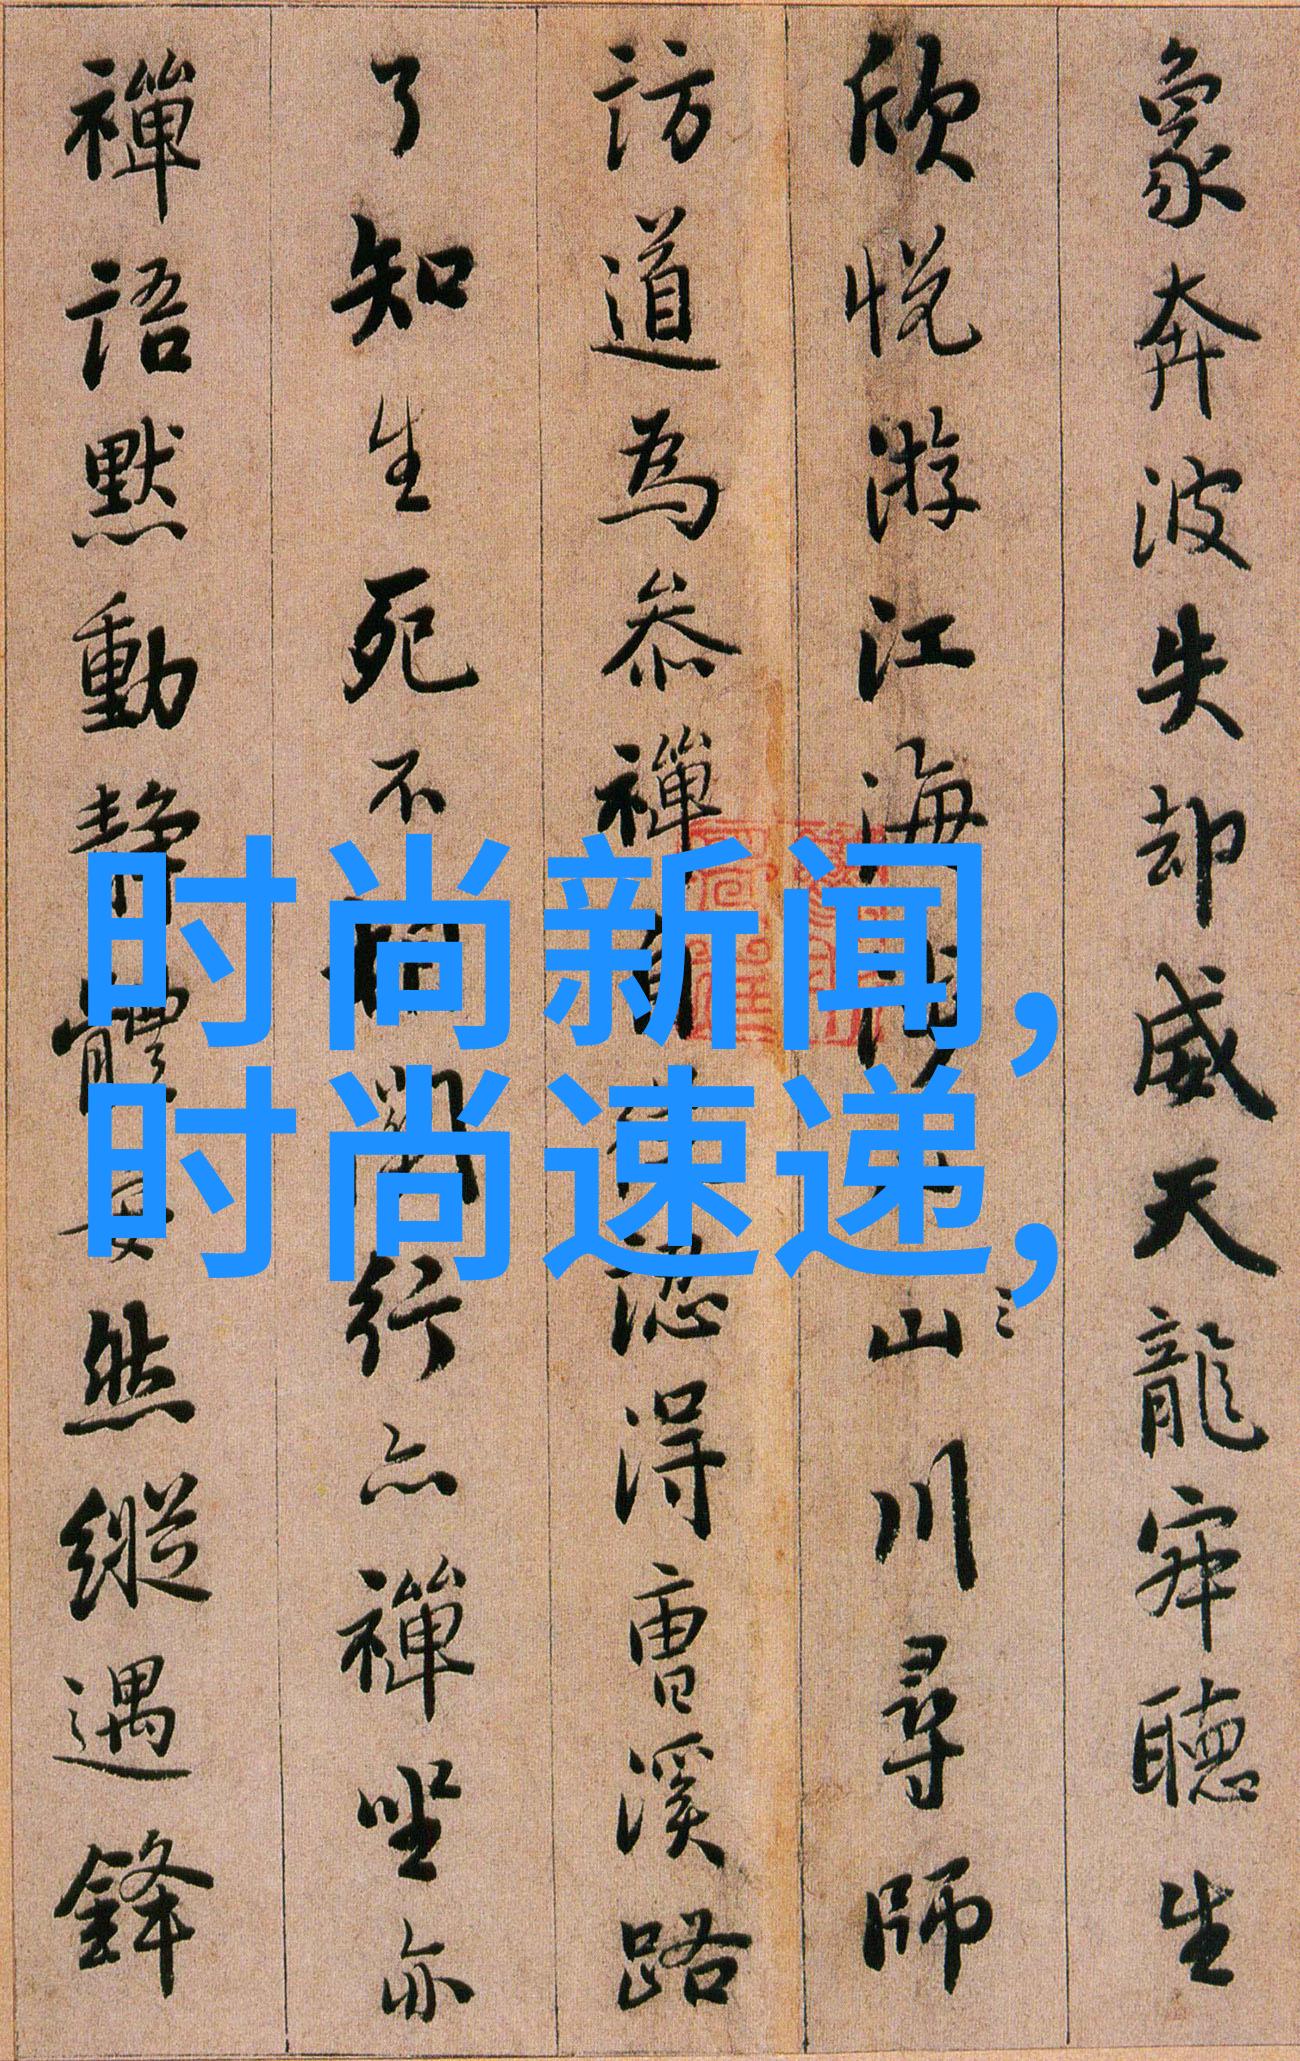 象奔波失却威天龍寂聽生
欣悅游江海山川尋師
訪道為參禪認得曹溪路
了知生死不關行亦禪坐亦
禪語默動靜體安然縱遇鋒
时尚新闻,
时尚速递,